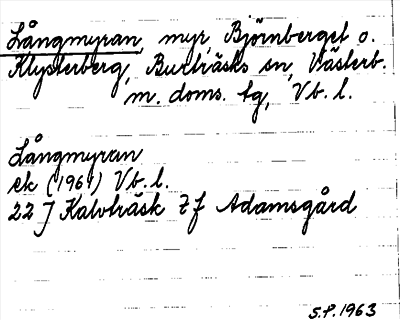 Långmyran, myr, Björnberget o.
Klysterberg, Burträsks sn, Västerb.
m. doms. bg, Vb. l.
Långmyran
ek (1961) Vb. l.
22 J Kalvträsk 7 f Adamsgård
S.P. 1963